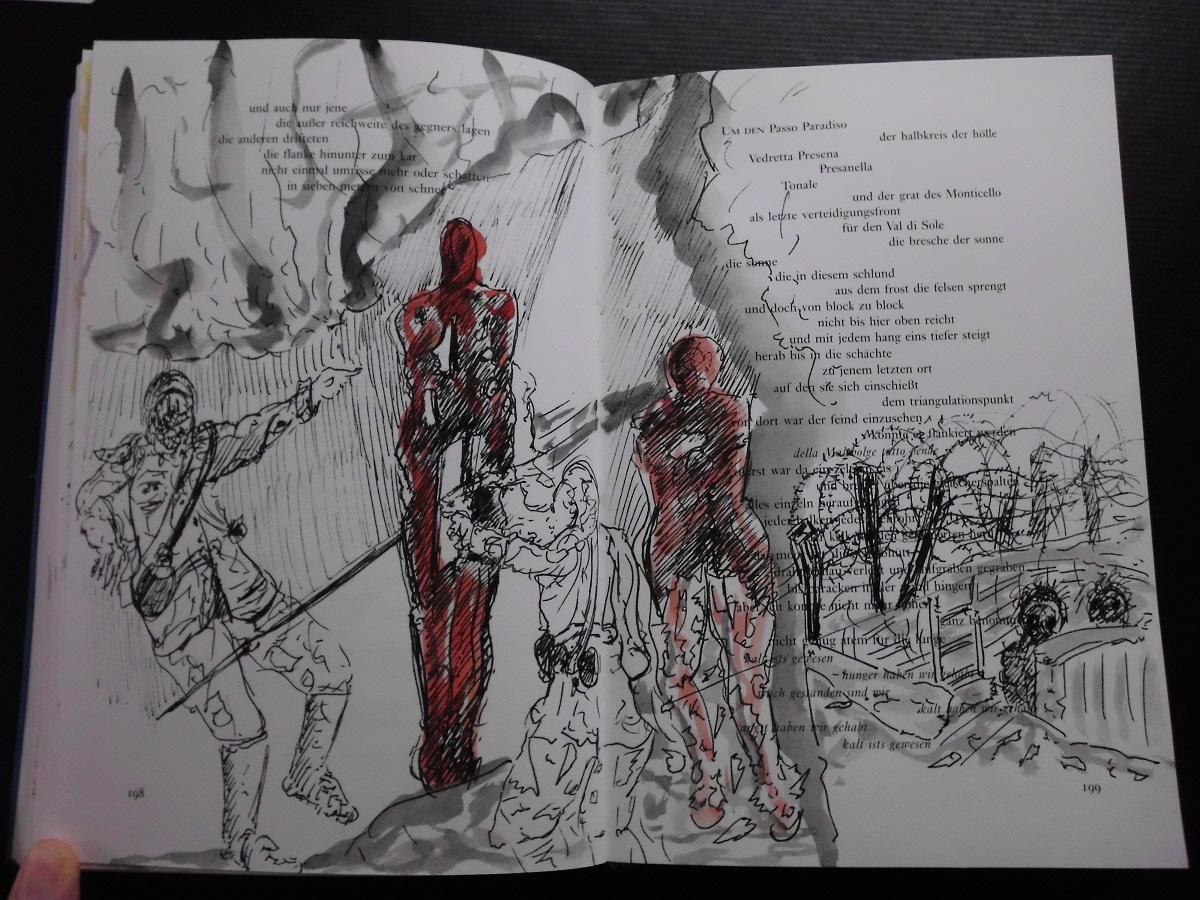 und auch nur jene
die außer reichweite des gegners lagen
die anderen drifteten
die flanke hinunter zum kar
nicht einmal umrisse mehr oder schatten
in sieben metern von schnee
198
UM DEN Passo Paradiso
der halbkreis der hölle
Vedretta Presena
Presanella
Tonale
und der grat des Monticello
als letzte verteidigungsfront
für den Val di Sole
die bresche der sonne
die sonne
die in diesem schlund
aus dem frost die felsen sprengt
und doch von block zu block
nicht bis hier oben reicht
und mit jedem hang eins tiefer steigt
herab bis in die schächte
zu jenem letzten ort
auf den sie sich einschießt
dem triangulationspunkt
von dort war der feind einzusehen
konnte er flankiert werden
della Malebolge tutto pende
erst war da
alles einzeln herauf
jeder balken jedes
und aufgraben gegraben
hingen
aber ich konnte nicht mehr
ganz benommen
nicht genug atem für die lunge
kalt ists gewesen
– hunger haben wir gehabt
gestanden sind wir
kalt haben wir gehabt
angst haben wir gehabt
kalt ists gewesen
199